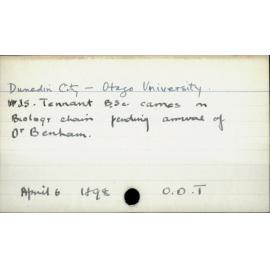 Dunedin City – Otago University.
W.J.S. Tennant BSc carries on
Biology chair pending arrival of
Dr Benham.
April 6 1898 O.D.T